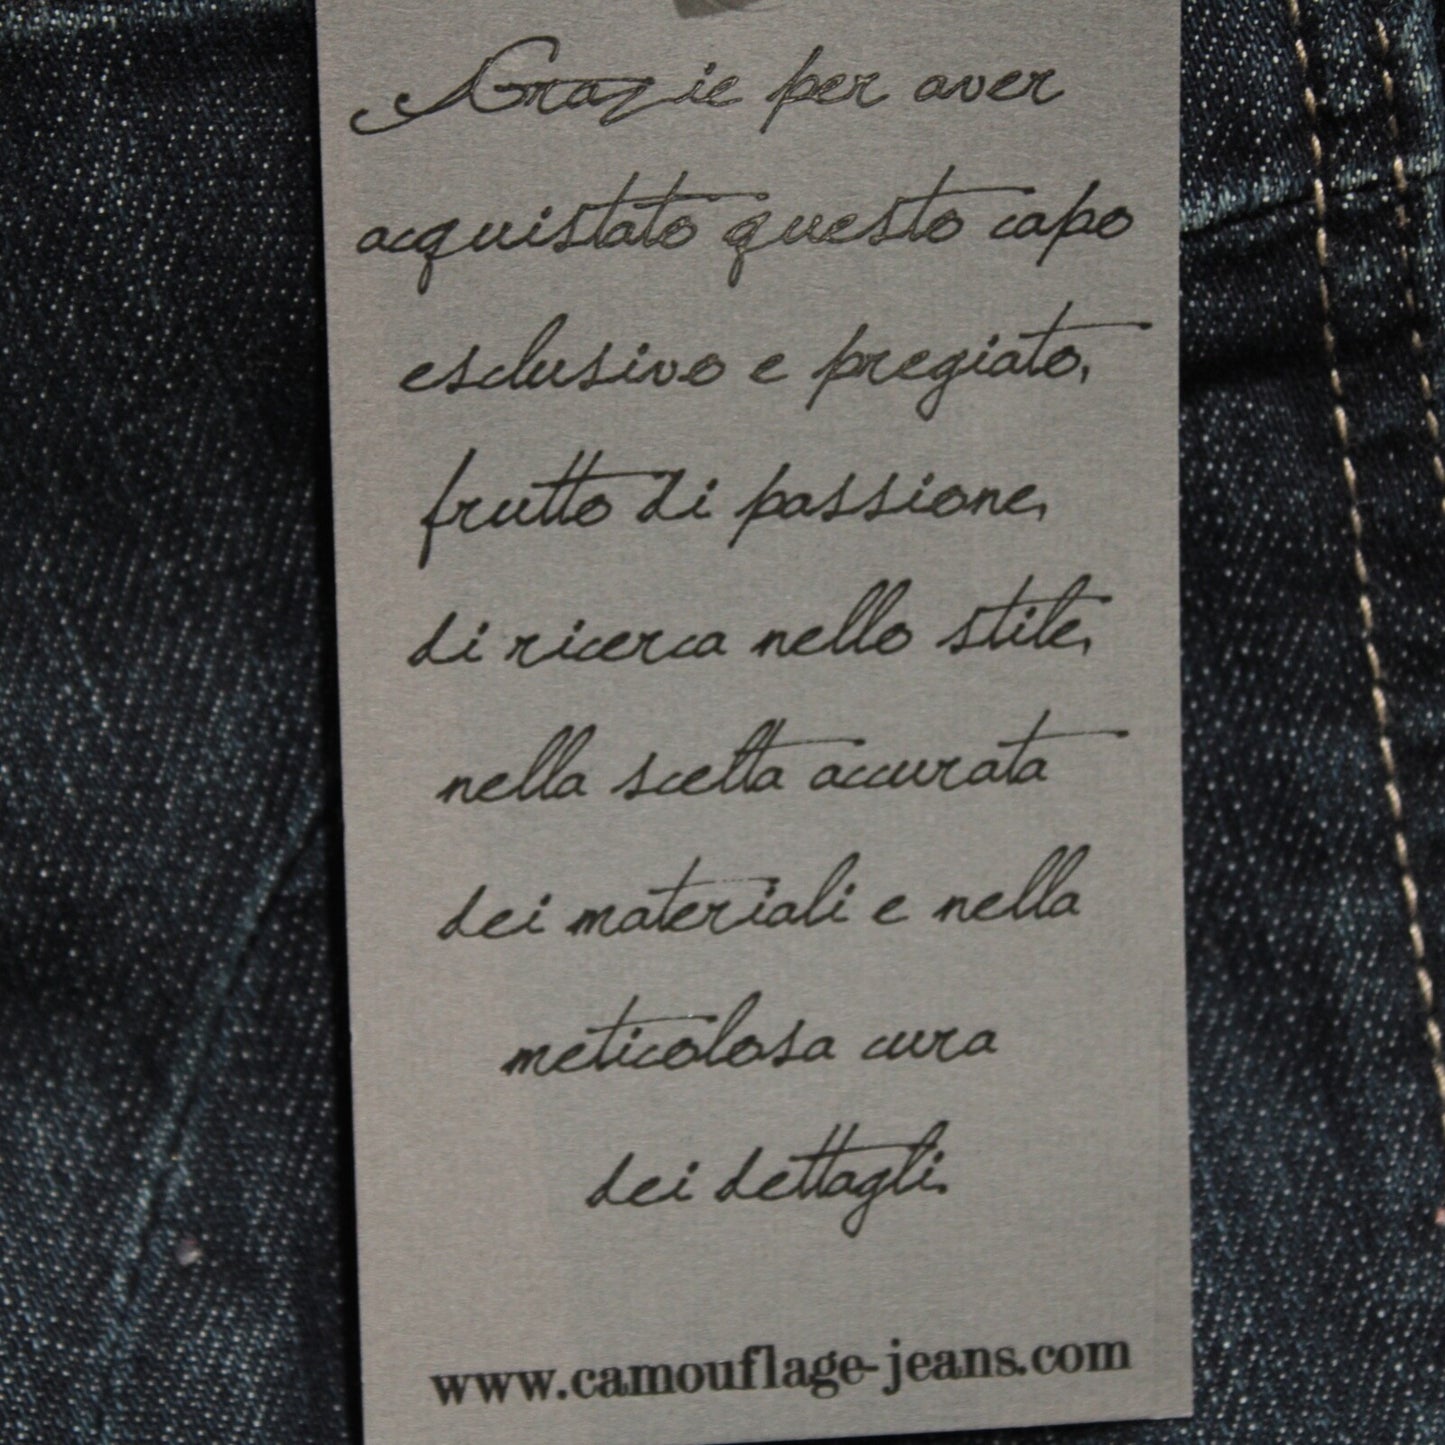 Grazie per aver
acquistato questo capo
esclusivo e pregiato,
frutto di passione,
di ricerca nello stile,
nella scelta accurata
dei materiali e nella
meticolosa cura
dei dettagli.
www.camouflage-jeans.com